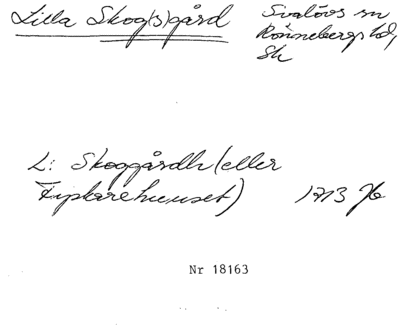 Lilla Skog(s)gård
Svalövs sn
Rönnebergs hd,
Sk
L: Skoggårdh (eller
Fiplarehuuset) 1713 Jb
Nr 18163